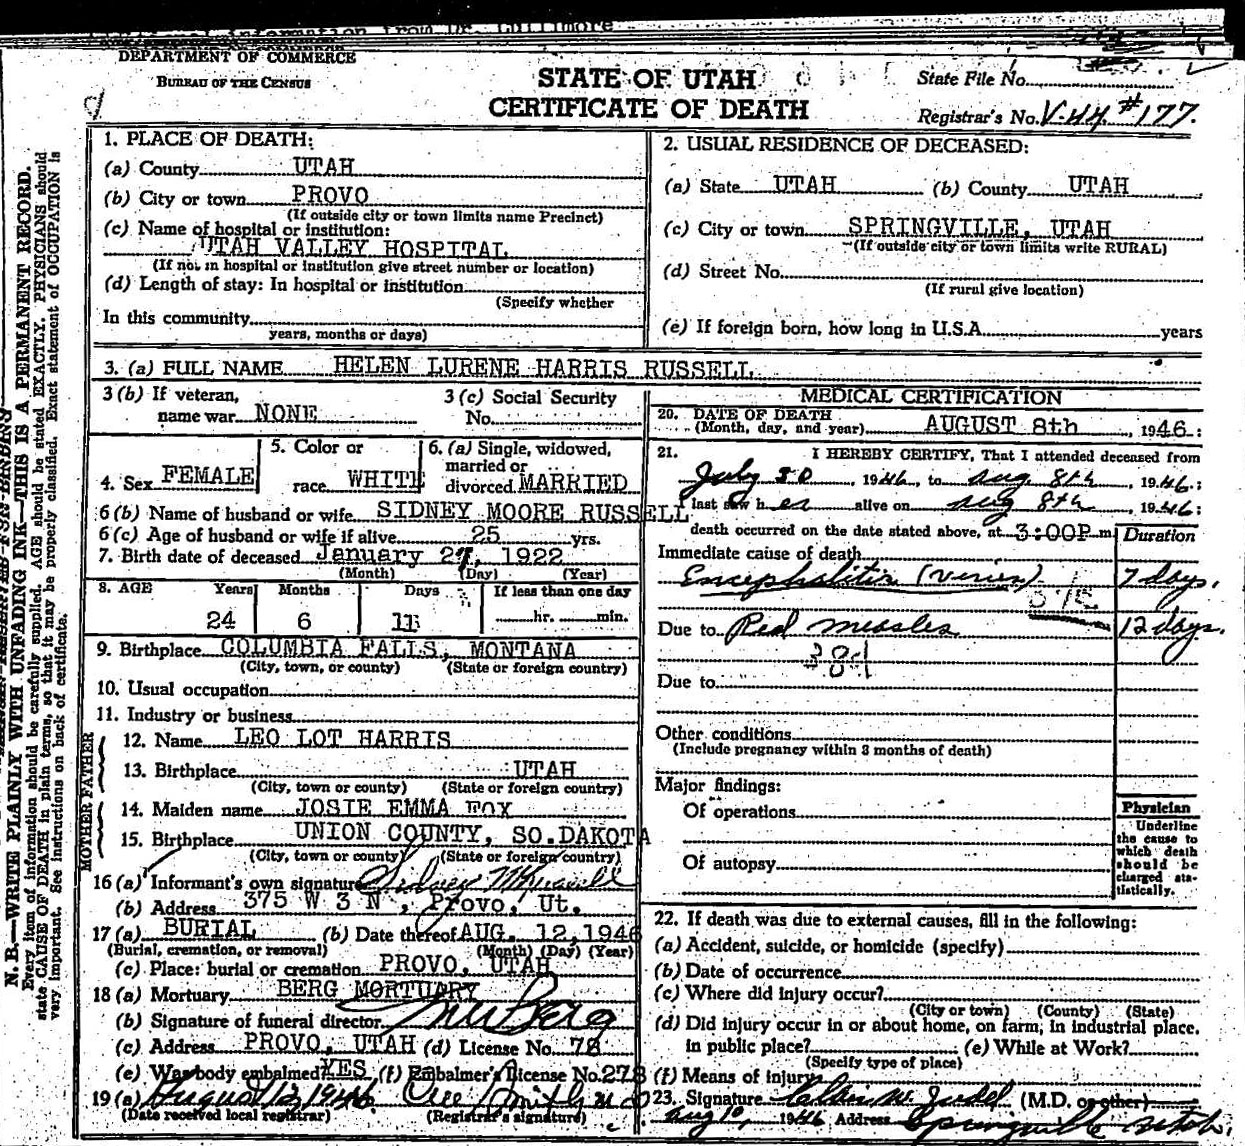 information from Dr. Cullimore
DEPARTMENT OF COMMERCE
BUREAU OF THE CENSUS
STATE OF UTAH
CERTIFICATE OF DEATH
State File No.
Registrar's No. V-44 #177.
N. B.—WRITE PLAINLY WITH UNFADING INK—THIS IS A PERMANENT RECORD.
Every item of information should be carefully supplied. AGE should be stated EXACTLY. PHYSICIANS should
state CAUSE OF DEATH in plain terms, so that it may be properly classified. Exact statement of OCCUPATION is
very important. See instructions on back of certificate.
1. PLACE OF DEATH:
(a) County UTAH
(b) City or town PROVO
(If outside city or town limits name Precinct)
(c) Name of hospital or institution:
UTAH VALLEY HOSPITAL
(If not in hospital or institution give street number or location)
(d) Length of stay: In hospital or institution
(Specify whether
In this community
years, months or days)
2. USUAL RESIDENCE OF DECEASED:
(a) State UTAH (b) County UTAH
(c) City or town SPRINGVILLE, UTAH
(If outside city or town limits write RURAL)
(d) Street No.
(If rural give location)
(e) If foreign born, how long in U.S.A. years
3. (a) FULL NAME HELEN LURENE HARRIS RUSSELL
3 (b) If veteran,
name war NONE
3 (c) Social Security
No.
4. Sex FEMALE
5. Color or
race WHITE
6. (a) Single, widowed,
married or
divorced MARRIED
6 (b) Name of husband or wife SIDNEY MOORE RUSSELL
6 (c) Age of husband or wife if alive 25 yrs.
7. Birth date of deceased January 27, 1922
(Month) (Day) (Year)
8. AGE Years Months Days If less than one day
24 6 11 hr. min.
9. Birthplace COLUMBIA FALLS, MONTANA
(City, town, or county) (State or foreign country)
10. Usual occupation
11. Industry or business
FATHER
12. Name LEO LOT HARRIS
13. Birthplace UTAH
(City, town or county) (State or foreign country)
MOTHER
14. Maiden name JOSIE EMMA FOX
15. Birthplace UNION COUNTY, SO.DAKOTA
(City, town or county) (State or foreign country)
16 (a) Informant's own signature Sidney M Russell
(b) Address 375 W 3 N, Provo, Ut.
17 (a) BURIAL (b) Date thereof AUG. 12, 1946
(Burial, cremation, or removal) (Month) (Day) (Year)
(c) Place: burial or cremation PROVO, UTAH
18 (a) Mortuary BERG MORTUARY
(b) Signature of funeral director Berg
(c) Address PROVO, UTAH (d) License No. 78
(e) Was body embalmed? YES (f) Embalmer's License No. 278
19 (a) August 12, 1946 Smith M D
(Date received local registrar) (Registrar's signature)
MEDICAL CERTIFICATION
20. DATE OF DEATH
(Month, day, and year) AUGUST 8th, 1946:
21. I HEREBY CERTIFY, That I attended deceased from
July 30, 1946, to Aug 8th, 1946;
last saw her alive on Aug 8th, 1946;
death occurred on the date stated above, at 3:00P m
Duration
Immediate cause of death
Encephalitis (virus) 7 days.
375
Due to Red measles 12 days.
381
Due to
Other conditions
(Include pregnancy within 3 months of death)
Major findings:
Of operations
Of autopsy
Physician
Underline
the cause to
which death
should be
charged sta-
tistically.
22. If death was due to external causes, fill in the following:
(a) Accident, suicide, or homicide (specify)
(b) Date of occurrence
(c) Where did injury occur?
(City or town) (County) (State)
(d) Did injury occur in or about home, on farm, in industrial place,
in public place? (e) While at Work?
(Specify type of place)
(f) Means of injury
23. Signature (M.D. or other)
Aug 10, 1946 Address Springville Utah.